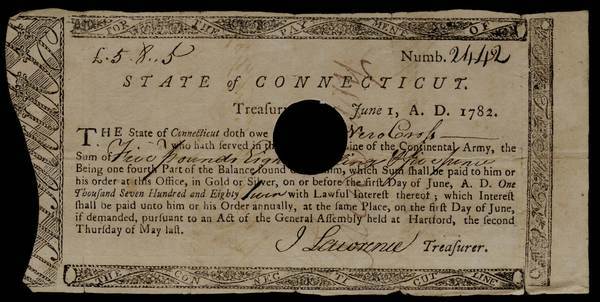 FOR THE PAY MENT OF
£.5.8..5 Numb. 2442
STATE of CONNECTICUT.
Treasur June 1, A. D. 1782.
THE State of Connecticut doth owe Nero Cross
who hath served in th ine of the Continental Army, the
Sum of Five Pounds Eight pence
Being one fourth Part of the Balance found him, which Sum shall be paid to him or
his order at this Office, in Gold or Silver, on or before the first Day of June, A. D. One
Thousand Seven Hundred and Eighty with Lawful Interest thereof; which Interest
shall be paid unto him or his Order annually, at the same Place, on the first Day of June,
if demanded, pursuant to an Act of the General Assembly held at Hartford, the second
Thursday of May last.
J Lawrence Treasurer.
THE CON NEC TI CUT LINE